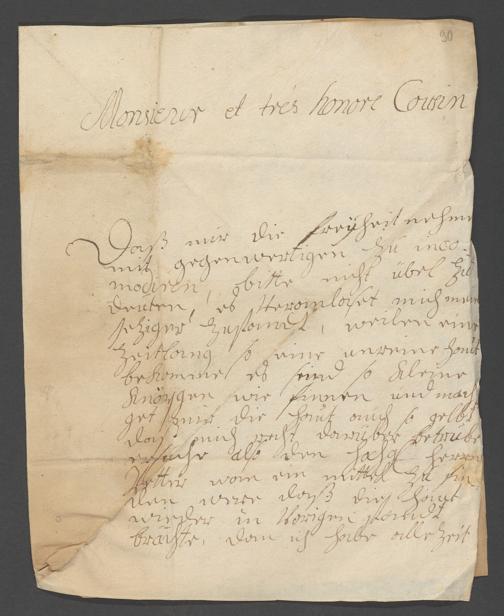 30
Monsieur et trés honoré Cousin
Daß mir die freÿheit nehme
mit gegenwertigen zu inco„
modiren, bitte nicht übel zu
deuten, es veranlaset mich mein
jeziger zustandt, weilen eine
Zeitlang so eine unreine haut
bekomme es sind so kleine
Knöpgen wie finnen und mach
get mir die haut auch so gelbt
daß mich recht darüber betrübe
ersuche als den herrn
Vetter wan ein mittel zu fin
den were daß die haut
wieder in vorigen standt
brächte, dan ich habe alle Zeit